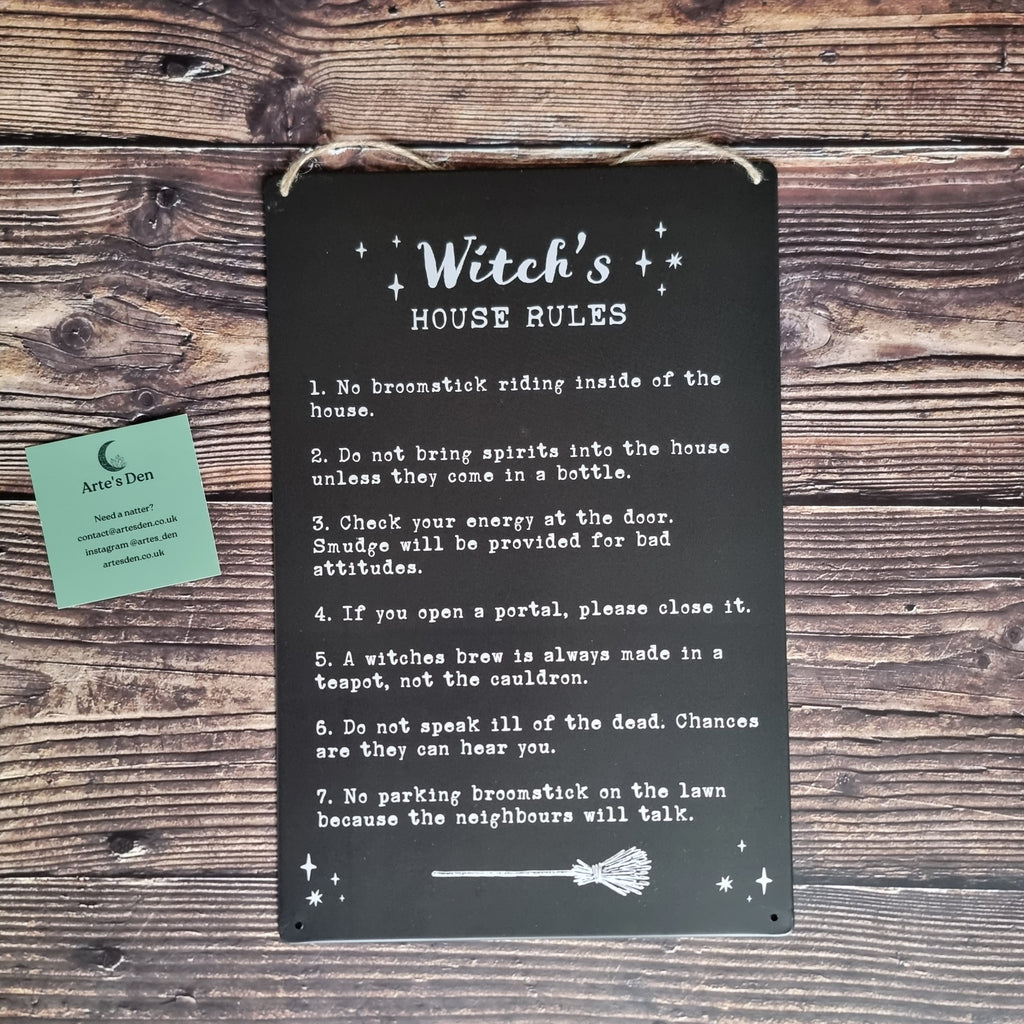 Witch's
HOUSE RULES
1. No broomstick riding inside of the
house.
2. Do not bring spirits into the house
unless they come in a bottle.
3. Check your energy at the door.
Smudge will be provided for bad
attitudes.
4. If you open a portal, please close it.
5. A witches brew is always made in a
teapot, not the cauldron.
6. Do not speak ill of the dead. Chances
are they can hear you.
7. No parking broomstick on the lawn
because the neighbours will talk.
Arte's Den
Need a natter?
contact@artesden.co.uk
instagram @artes_den
artesden.co.uk